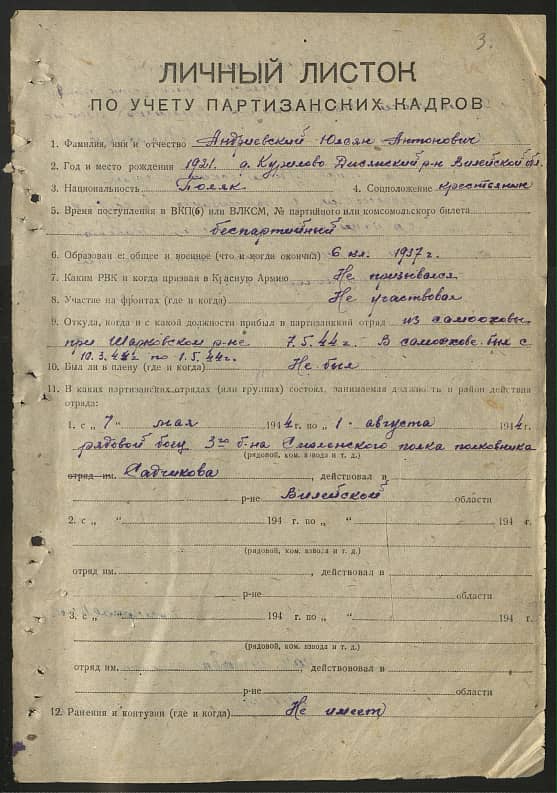 3.
ЛИЧНЫЙ ЛИСТОК
ПО УЧЕТУ ПАРТИЗАНСКИХ КАДРОВ
1. Фамилия, имя и отчество Андриевский Юльян Антонович
2. Год и место рождения 1921. д. Курилово Дисянский р-н Вилейской обл.
3. Национальность Поляк 4. Соцположение крестьянин
5. Время поступления в ВКП(б) или ВЛКСМ, № партийного или комсомольского билета
беспартийный
6. Образование: общее и военное (что и когда окончил) 6 кл. 1937г.
7. Каким РВК и когда призван в Красную Армию Не призывался
8. Участие на фронтах (где и когда) Не участвовал
9. Откуда, когда и с какой должности прибыл в партизанский отряд из самооховы
при Шарковском р-не 7.5.44г. В самоохове был с
10.3.44г по 1.5.44г.
10. Был ли в плену (где и когда) Не был
11. В каких партизанских отрядах (или группах) состоял, занимаемая должность и район действия
отряда:
1. с „ 7 " мая 1944 г. по „ 1 " августа 1944 г.
рядовой боец 3го б-на Смоленского полка полковника
(рядовой, ком. взвода и т. д.)
отряд им. Садчикова, действовал в
р-не Вилейской области
2. с „ " 194 г. по „ " 194 г.
(рядовой, ком. взвода и т. д.)
отряд им. , действовал в
р-не области
3. с „ " 194 г. по „ " 194 г.
(рядовой, ком. взвода и т. д.)
отряд им. , действововал в
р-не области
12. Ранения и контузии (где и когда) Не имеет